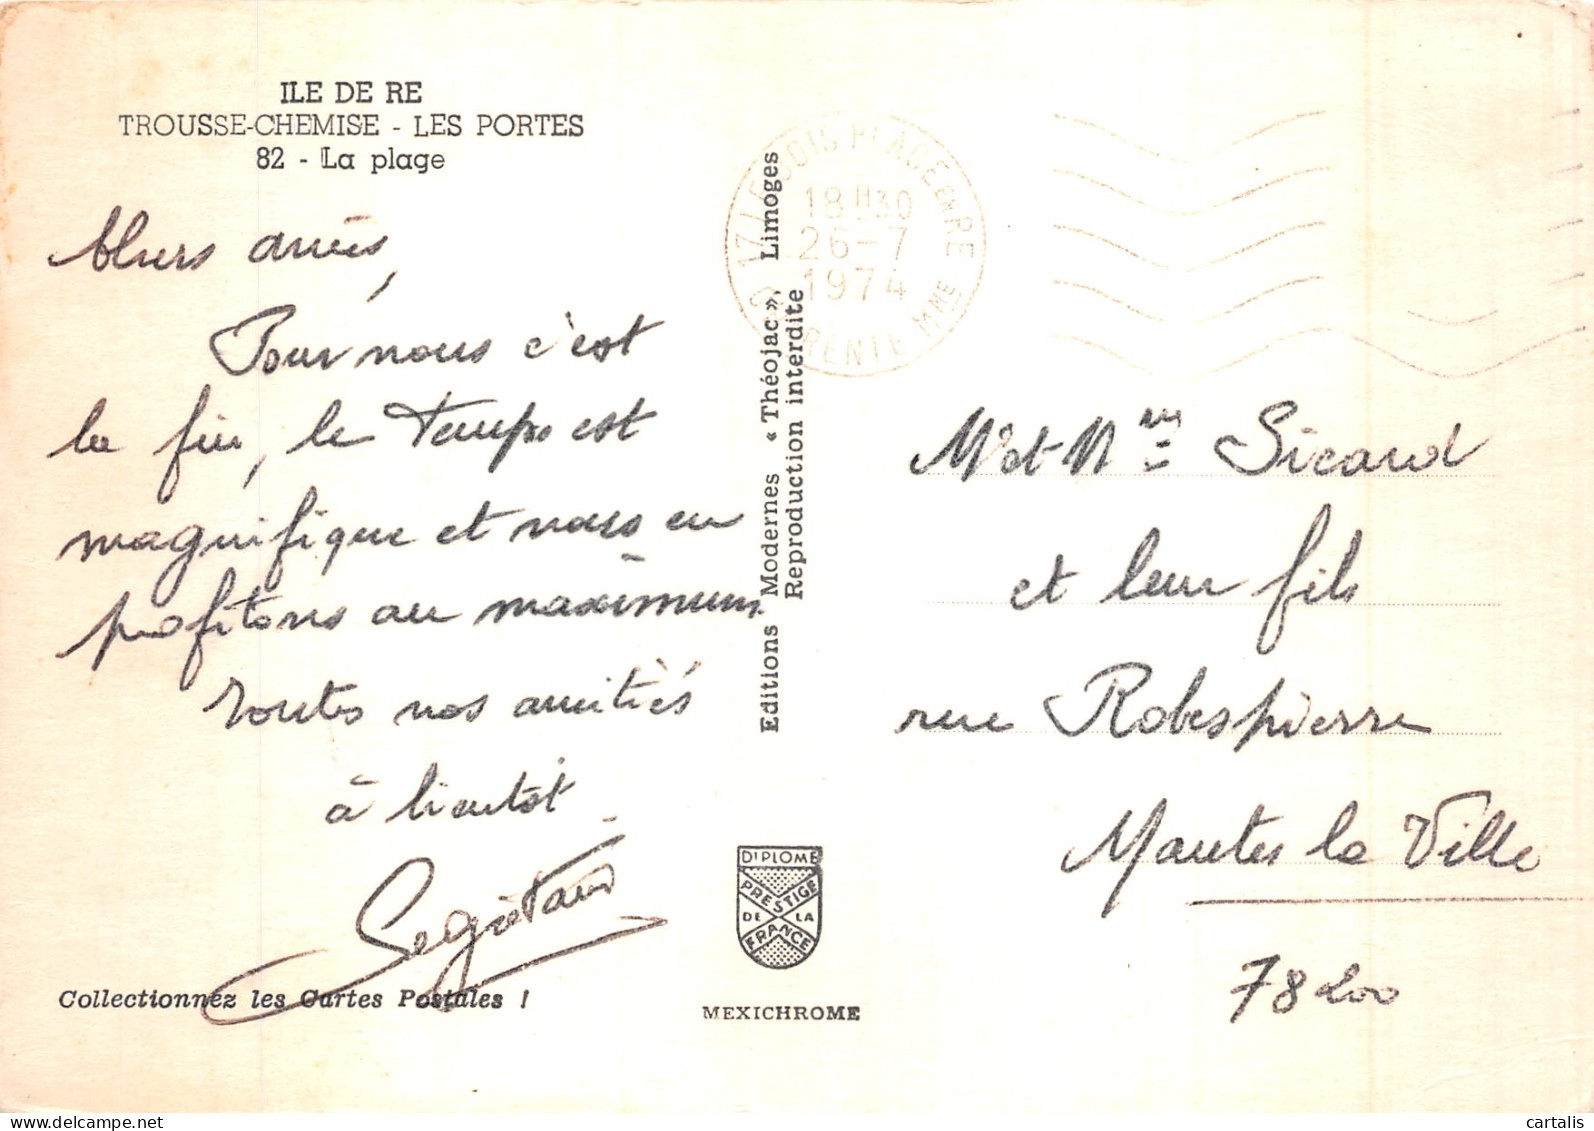 ILE DE RE
TROUSSE-CHEMISE - LES PORTES
82 - La plage
Chers amis,
Pour nous c'est
la fin, le temps est
magnifique et nous en
profitons au maximum
toutes nos amitiés
à bientôt.
Segrétain
Collectionnez les Cartes Postales !
Editions Modernes « Théojac », Limoges
Reproduction interdite
17 LE BOIS PLAGE EN RE
18H30
26-7
1974
CHARENTE MME
DIPLOME
PRESTIGE
DE LA
FRANCE
MEXICHROME
Mr et Mme Sicard
et leur fils
rue Robespierre
Mantes la Ville
78200
www.delcampe.net
cartalis